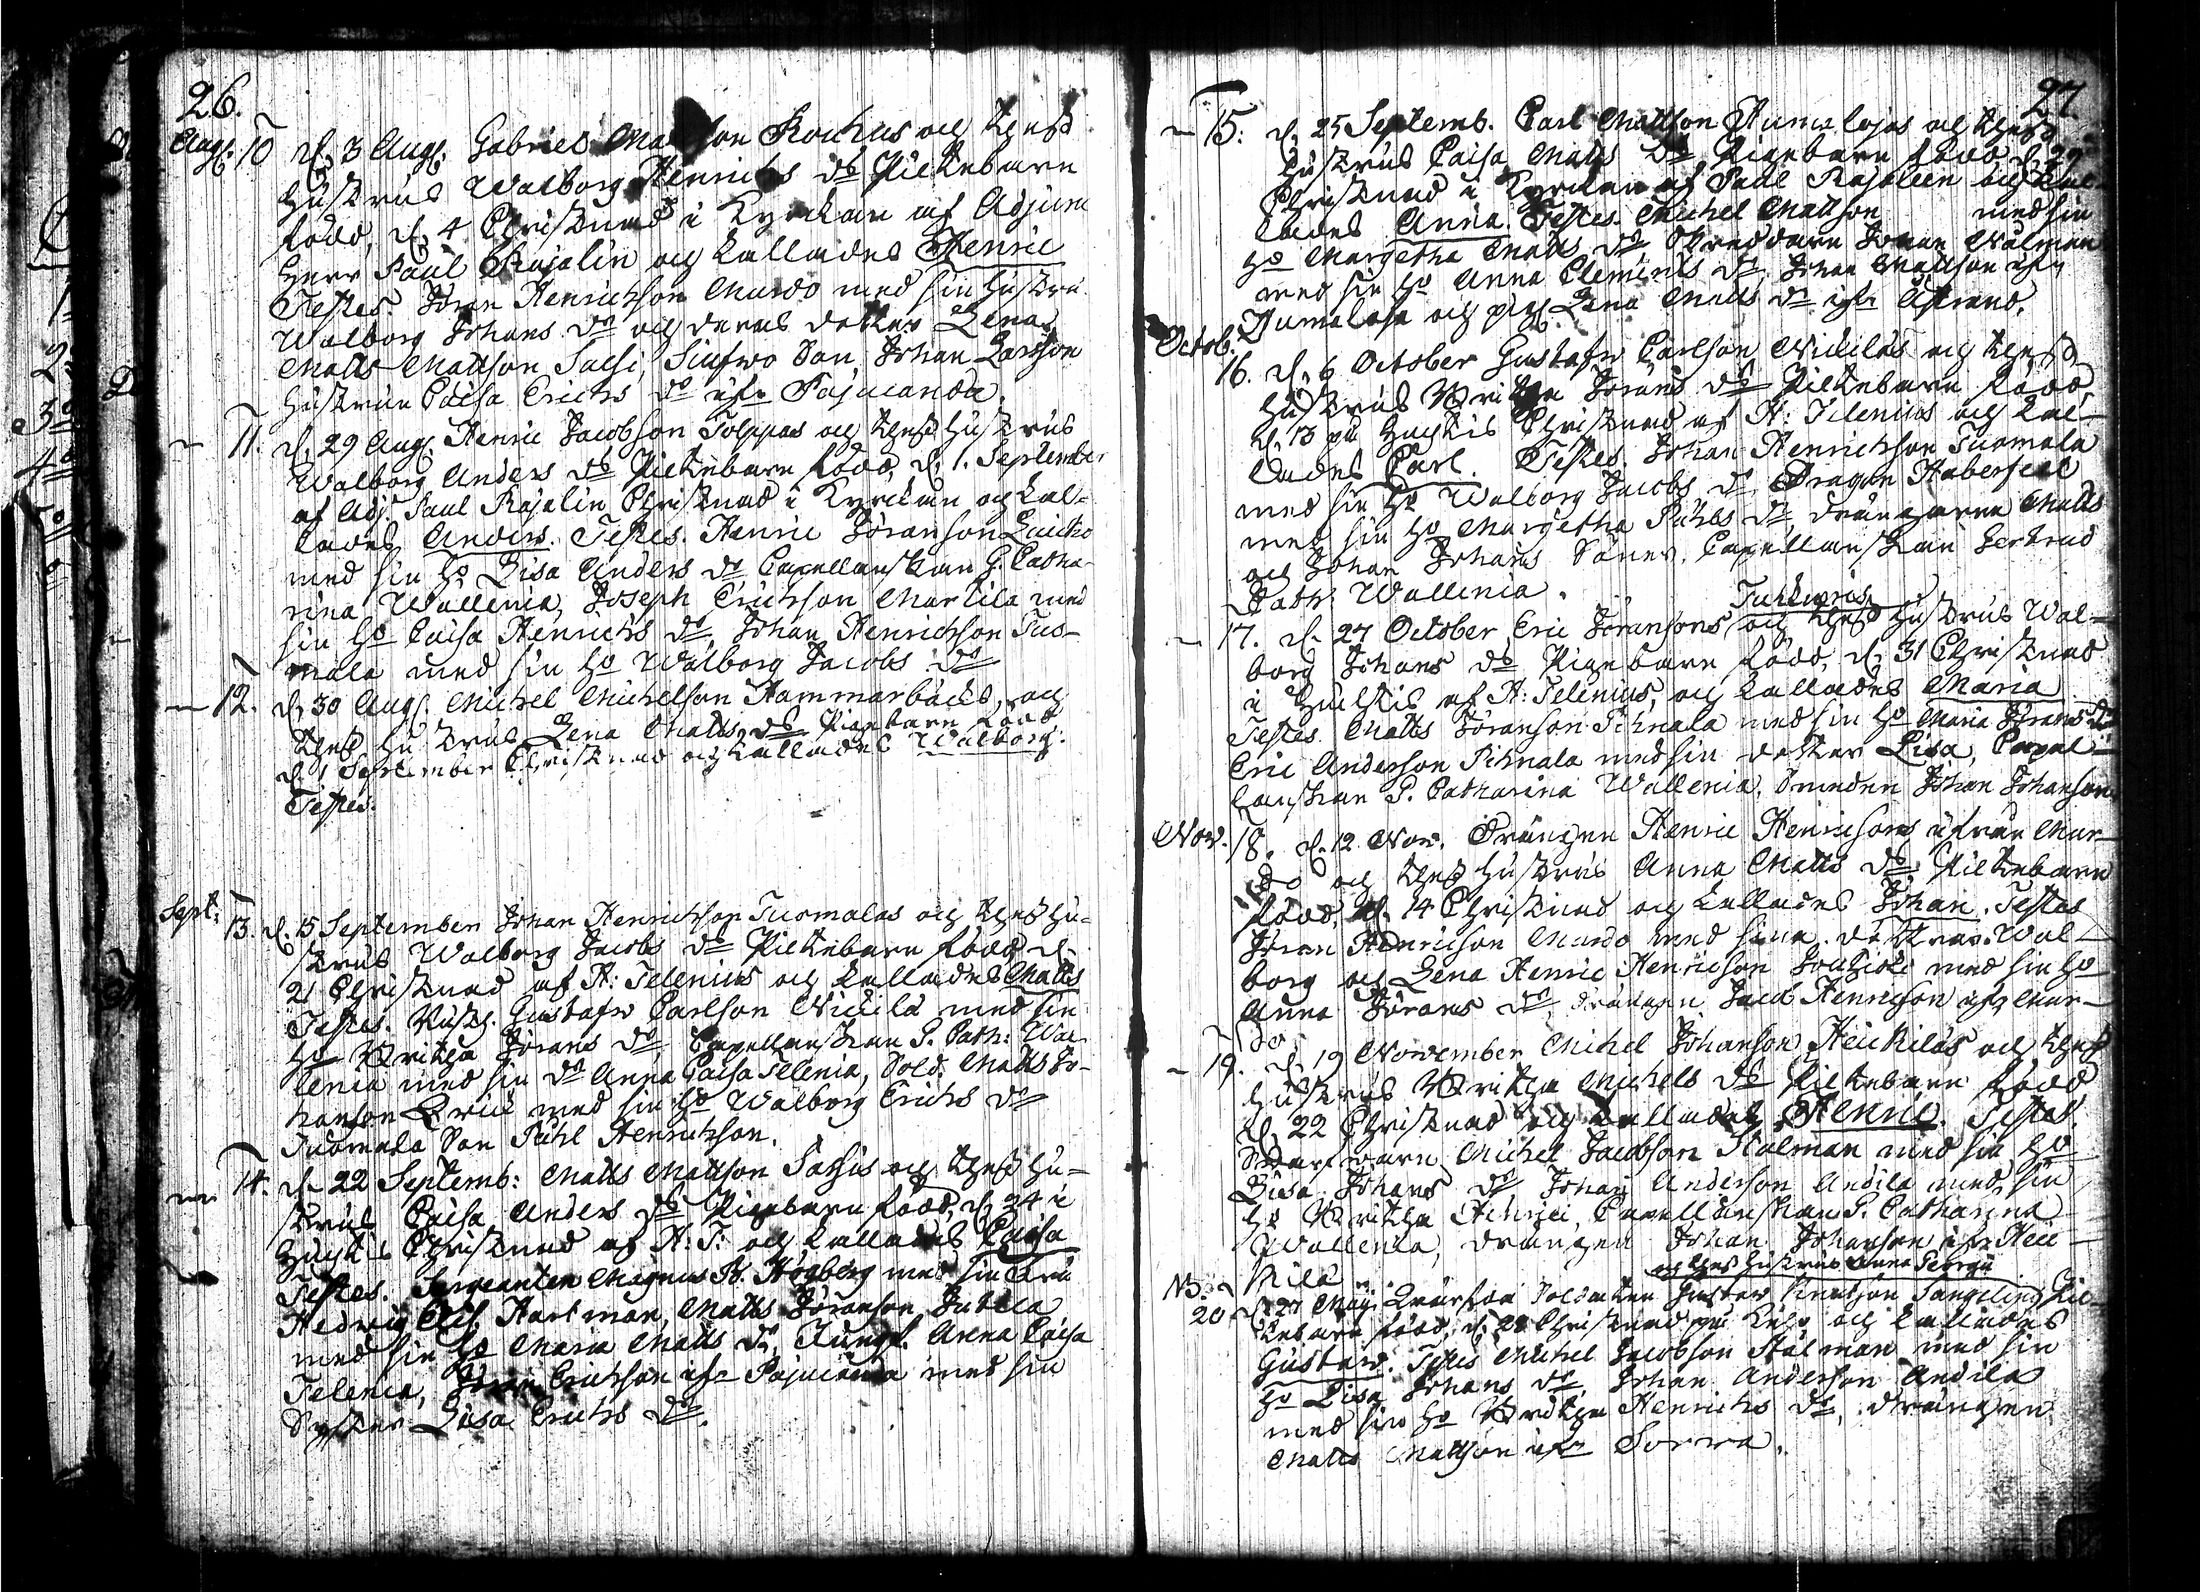 26.
Aug: 10 d. 3 Aug: Gabriel Mattson Rockas och thes
hustrus Walborg Henrichs dr Piltebarn
född, d. 4 Christnad i Kyrckan af Adjunc
Herr Paul Rajalin och kallades Henric
Testes. Jöran Henrichson Murdo med sin hustru
Walborg Johans dr och deras dotter Lena,
Matts Mattson Sachi, Son, Johan Larsson
hustrun Caisa Erichs dr ifr. Pajucanda.
11. d. 29 Aug. Henric Jacobson Tolppas och thes hustrus
Walborg Anders dr Piltebarn född, d. 1. September
af Adj. Paul Rajalin Christnad i Kyrckan och kal-
lades Anders. Testes. Henric Jöranson Luicko
med sin ho Lisa Anders dr Capellanskan G. Catha-
rina Wallenia, Joseph Erichson Martila med
sin ho Caisa Henrichs dr, Johan Henrichson Tuo-
mala med sin ho Walborg Jacobs dr
12. d. 30 Aug. Michel Michelson Hammarbacks, och
thes hustrus Lena Matts dr Pigebarn född
d. 1 September Christnad och kallades Walborg.
Testes.
Sept: 13. d. 15 September Johan Henrichson Tuomalas och thes hu-
strus Walborg Jacobs dr Piltebarn född d.
21 Christnad af H: Telenius och kallades Matts
Testes. Rusth. Gustafw Carlson Nickila med sin
ho Britha Jörans dr, Capellanskan G. Cath: Wal-
lenia med sin dr Anna Caisa Telenia, Sold. Matts Jo-
hanson Qvick med sin ho Walborg Erichs dr
Tuomala Son Påhl Henrichson.
14. d. 22 Septemb: Matts Mattson Sachis och thes hu-
strus Caisa Anders dr Pigebarn född, d. 24 i
Christnad af H: T: och kallades Caisa
Testes. Sergeanten Magnus H. Högberg med sin Fru
Hedvig Elis. Hartman, Matts Jöranson Jutila
med sin ho Maria Matts dr, Jungf. Anna Caisa
Telenia, Jöran Erichson ifr Pajucanda med sin
Syster Lisa Erichs dr.
27.
15. d. 25 Septemb. Carl Mattson Humalojas och thes
hustrus Caisa Matts dr Pigebarn född, d. 29
Christnad i Kyrckan af Paul Rajalin och kal-
lades Anna. Testes. Michel Mattson med sin
ho Margetha Matts dr Skreddare Johan Wålman
med sin ho Anna Clements dr Johan Mattson ifr
Humaloja och pig. Lena Matts dr ifr Åstrand.
Octob. 16. d. 6 October Gustafw Carlson Nickilas och thes
hustrus Britha Jörans dr Piltebarn född,
d. 13 på Christnad af H: Telenius och kal-
lades Carl. Testes. Johan Henrichson Tuomala
med sin ho Walborg Jacobs dr Dragon Haberfelt
med sin ho Margetha Påhls dr, drängarna Matts
och Johan Johans Söner, Capellanskan Gertrud
Cath: Wallenia.
17. d. 27 October Eric Jöransons Turkuris och thes hustrus Wal-
borg Johans dr Pigebarn född, d. 31 Christnad
i af H: Telenius, och kallades Maria
Testes. Matts Jöranson Pehnala med sin ho Maria Jörans dr
Eric Anderson Pehnala med sin dotter Lisa, Capel-
lanskan G. Catharina Wallenia, Smeden Johan Johanson
Nov. 18. d. 12 Nov. Drängen Henric Henricsons ifrån Mur-
do och thes hustrus Anna Matts dr, Piltebarn
född, d. 14 Christnad och kallades Johan. Testes
Jöran Henricson Murdo med sina döttrar Wal-
borg och Lena Henric Henricson med sin ho
Anna Jörans dr, drängen Jacob Henricson ifr Mur-
do.
19. d. 19 November Michel Johanson Heickilas och thes
hustrus Britha Michels dr Piltebarn född
d. 22 Christnad och kallades Henric. Testes.
Michel Jacobson Stålman med sin ho
Lisa Johans dr Johan Anderson Andila med sin
ho Britha Henrici, Capellanskan G. Catharina
Wallenia, drängen Johan Johanson ifr Heic-
kila
och thes hustrus Anna Georgii
NB. 20 d. 27 Maji Soldaten Gustaw Knutson Tangelins Pil-
tebarn född, d. 28 Christnad och kallades
Gustaw. Testes Michel Jacobson Stålman med sin
ho Lisa Johans dr, Johan Anderson Andila
med sin ho Britha Henrichs dr, drängen
Matts Mattson ifr Sorwa.